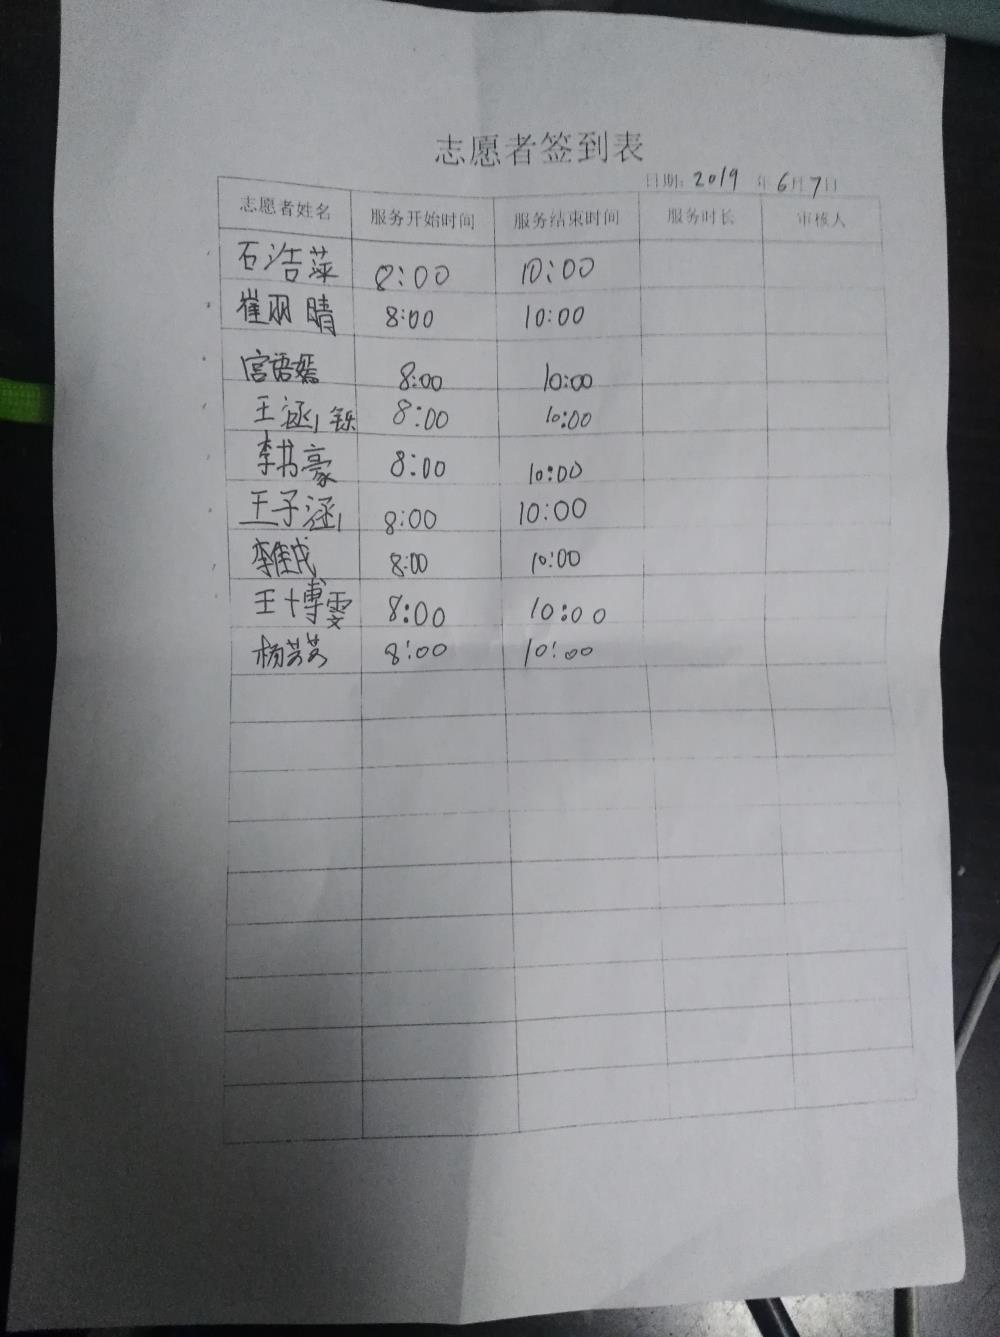 志愿者签到表
日期: 2019 年 6月 7日
志愿者姓名 服务开始时间 服务结束时间 服务时长 审核人
石浩萍 8:00 10:00
崔丽晴 8:00 10:00
宫语嫣 8:00 10:00
王涵铄 8:00 10:00
李书豪 8:00 10:00
王子涵 8:00 10:00
8:00 10:00
王博雯 8:00 10:00
杨芳芳 8:00 10:00